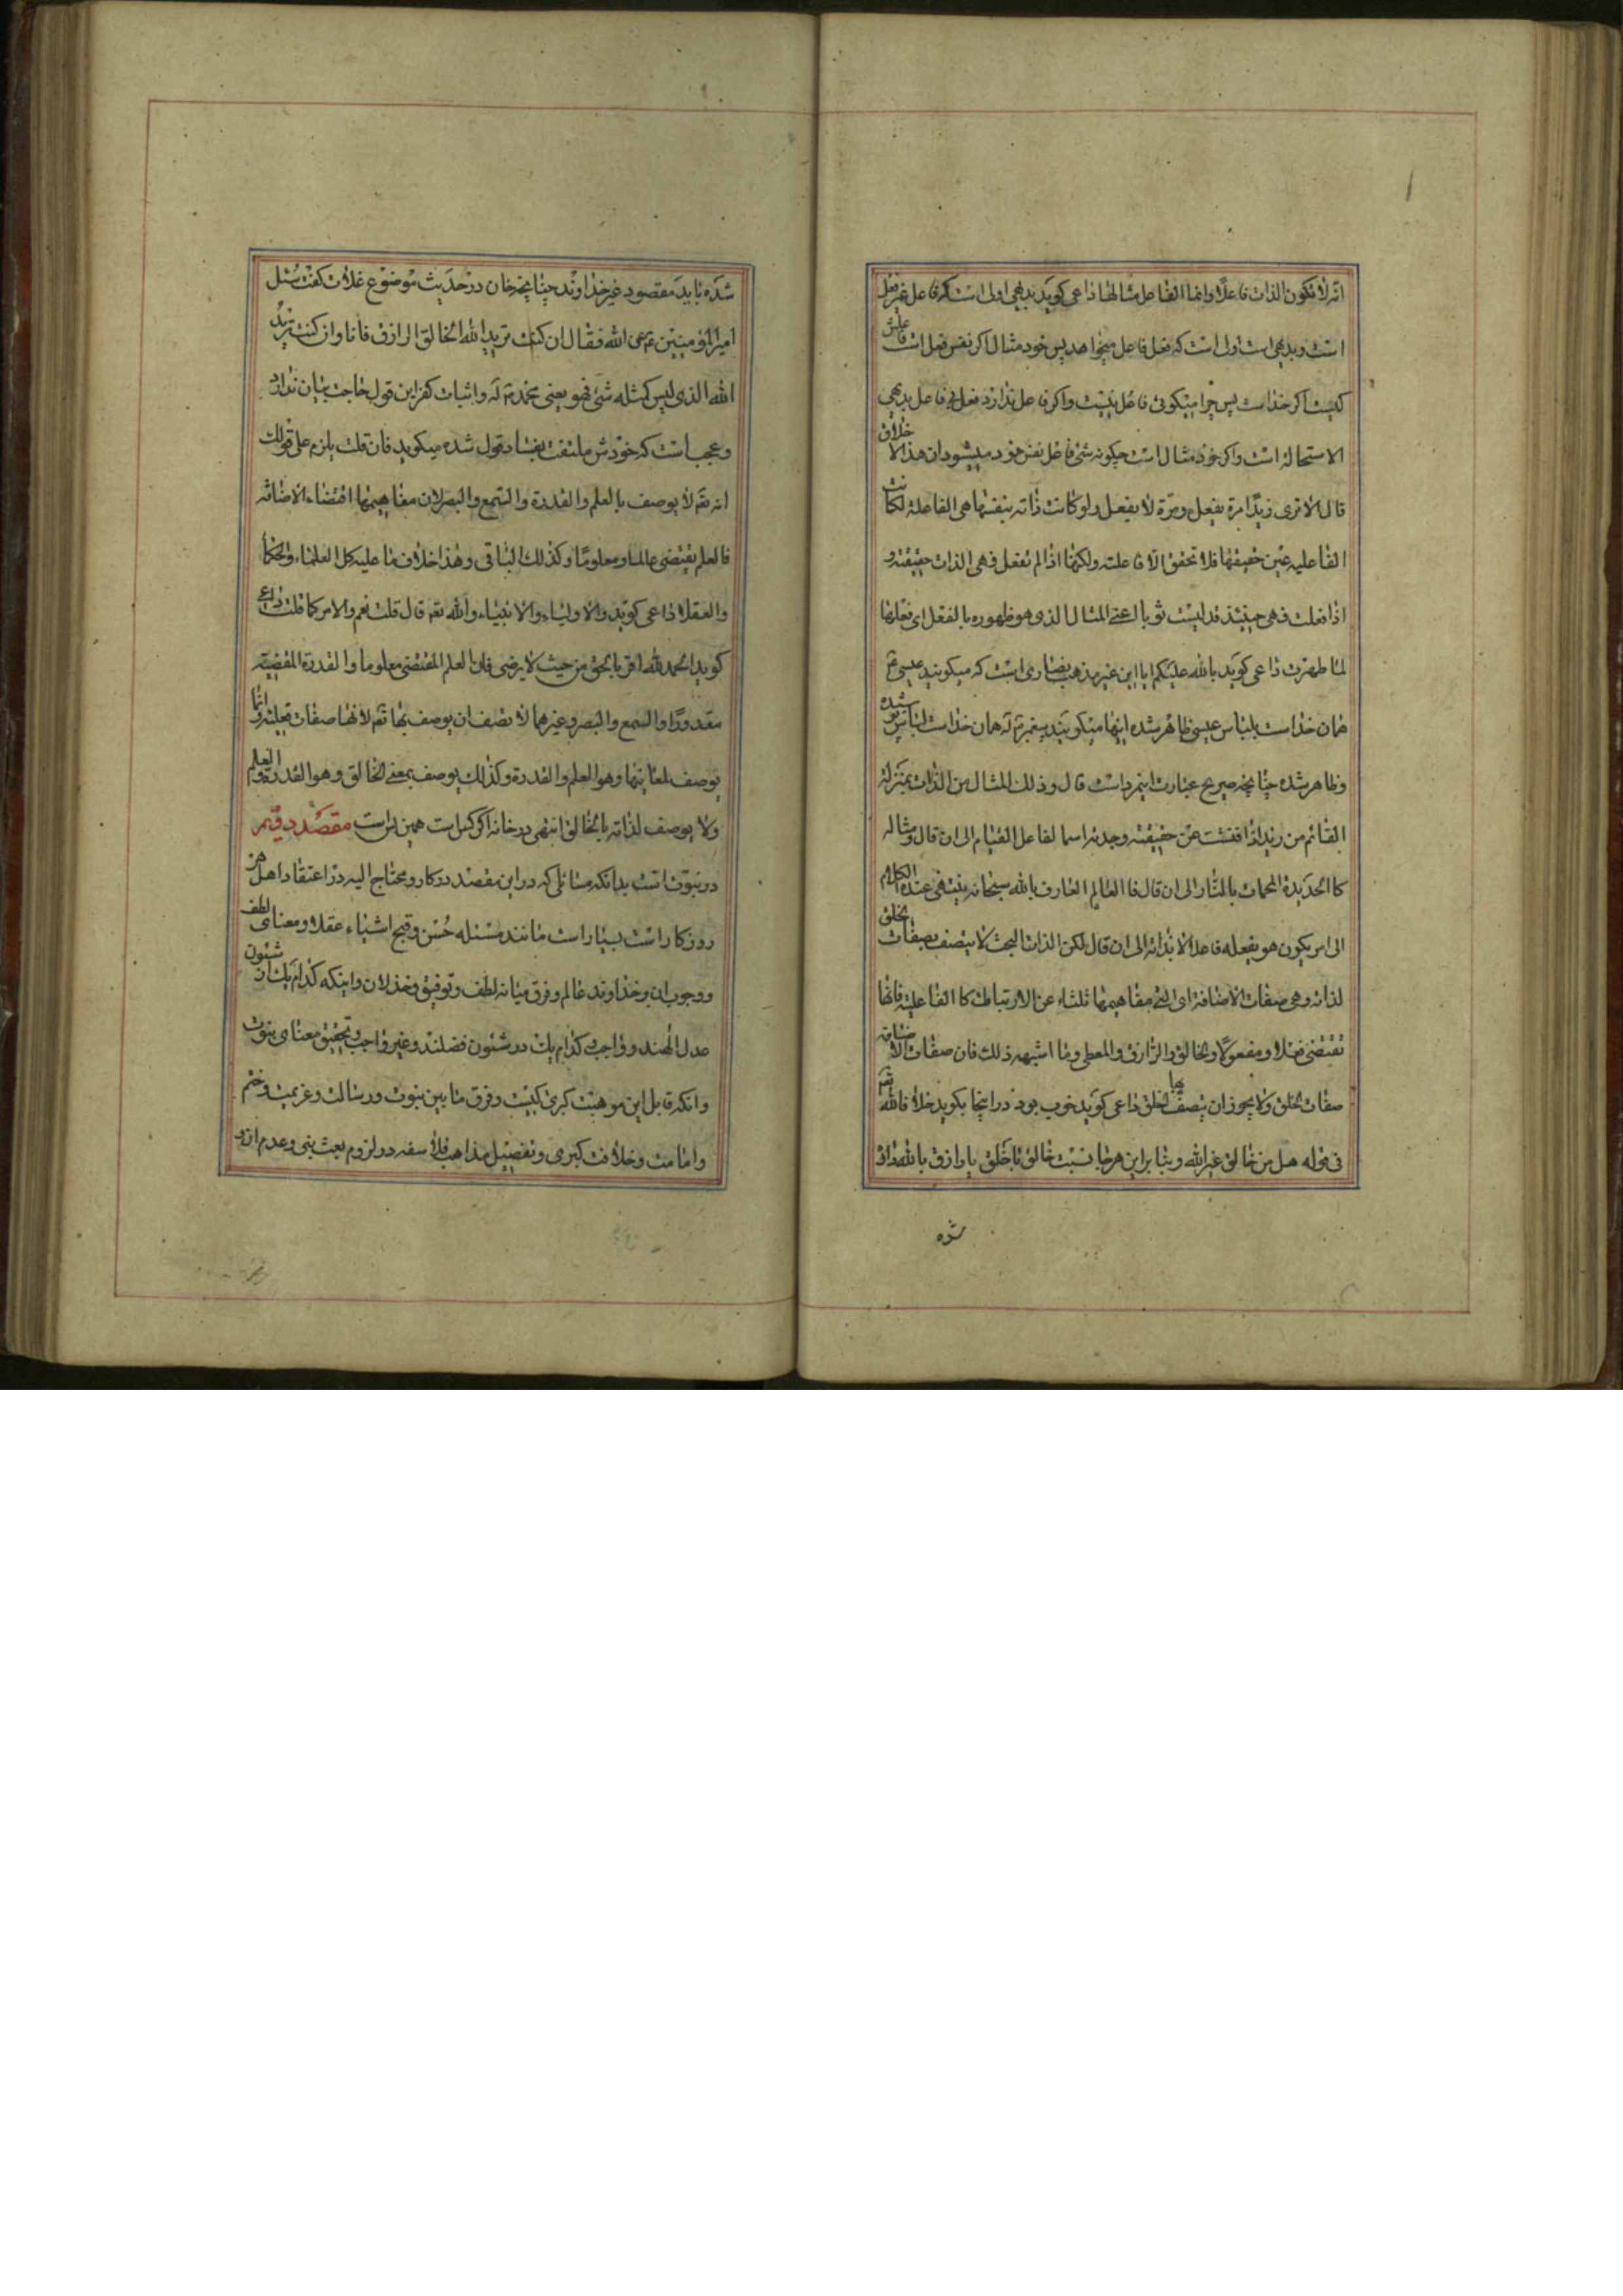 انه لا تكون الذات فاعلا وانما الفاعل مثالها داعی کوید بدیهی اولی است که فاعل غیر فعل
است و بدیهی است اولی است که فعل فاعل میخواهد پس خود مثال اکر نفس فعل است فاعلش
کیست اکر خداست پس چرا میکوئی فاعل نیست و اکر فاعل ندارد فعل بی فاعل بدیهی
الاستحاله است و اکر خود مثال است چکونه شئ فاعل نفس خود میشود ان هذا الا خلاق
قال الا تری زیدا مرة یفعل و مرة لا یفعل ولو کانت ذاته بنفسها هی الفاعلة لکانت
الفاعلیه عین حقیقتها فلا تحقق الا فاعلته ولکنها اذا لم تفعل فهی الذات حقیقته و
اذا فعلت فهی حینئذ قد لبست ثوبا اعنی المثال الذی هو ظهوره بالفعل ای فعلها
لما ظهرت داعی کوید بالله علیکم ایا این غیر مذهب نصاری است که میکویند عیسی ع
همان خداست بلباس عیسی ظاهر شده اینها میکویند پیغمبر ص له همان خداست لباس پو شده
و ظاهر شده چنانچه صریح عبارت اینمرد است قال وذلك المثال من الذات بمنزلة
القائم من زید اذا فتشت عن حقیقته وجدته اسما لفاعل القیام الی ان قال و مثاله
کالحدیدة المحمات بالنار الی ان قال فالعالم العارف بالله سبحانه ینتهی عنده الکلام
الی امر یکون هو بفعله فاعلا لا بذاته الی ان قال لکن الذات البحت لا یتصف بصفات الخلق
لذاته وهی صفات الاضافة ای التی مفاهیمها تلثاء عن الارتباط کالفاعلیة فانها
تقتضی فعلا و مفعولا والخالق والرازق والمعطی وما اشبهه ذلك فان صفات الاضافة
صفات الخلق ولا یجوز ان یتصف بها الخلق داعی کوید خوب بود در اینجا بکوید خلافا لله تع
فی قوله هل من خالق غیر الله و بنا براین هرجا نسبت خالق یا خلق یا رازق بالله داد
شده
شده باید مقصود غیر خداوند چنانچه خان در حدیث موضوع غلات کفت سئل
امیر المؤمنین ع عن الله فقال ان کنت ترید الله الخالق الرازق فانا وان کنت ترید
الله الذی لیس کمثله شئ فهو یعنی محمد ص له و اثبات کفر این قول حاجت بیان ندارد
و عجب است که خودش ملتفت بفساد قول شده میکوید فان قلت یلزم علی قولك
انه تع لا یوصف بالعلم والقدرة والسمع والبصر لان مفاهیمها اقتضاء الاضافه
فالعلم یقتضی عالما و معلوما وکذلك الباقی وهذا خلاف ما علیه کل العلماء والحکماء
والعقلا داعی کوید والاولیاء والانبیاء والله تع قال قلت نعم والامر کما قلت داعی
کوید الحمد لله اقر بالحق من حیث لا یرضی فان العلم المقتضی معلوما والقدرة المقتضیه
مقدورا والسمع والبصر وغیرهما لا نصف ان یوصف بها تع لانها صفات فعلیه وانما
یوصف لمعانیها وهو العلم والقدرة وکذلك یوصف بمعنی الخالق وهو القدرة والعلم
ولا یوصف لذاته بالخالق انتهی در خانه اکر کس است همین بس است مقصد دویم
در نبوت است بدانکه مسائلی که در این مقصد در کار و محتاج الیه در اعتقاد اهل هر
روزکار است بسیار است مانند مسئله حسن و قبح اشیاء عقلا و معنای لطف
و وجوب ان بر خداوند عالم و فرق میانه لطف و توفیق و خذلان و اینکه کدام یك از شئون
عدل الهند و واجب و کدام یك در شئون فضلند و غیر واجب و تحقیق معنای نبوت
وانکه قابل این موهبت کبری کیست و فرق ما بین نبوت و رسالت و عزیمت و ختم
و امامت و خلافت کبری و تفصیل مذاهب فلاسفه در لزوم بعث نبی و عدم ان و